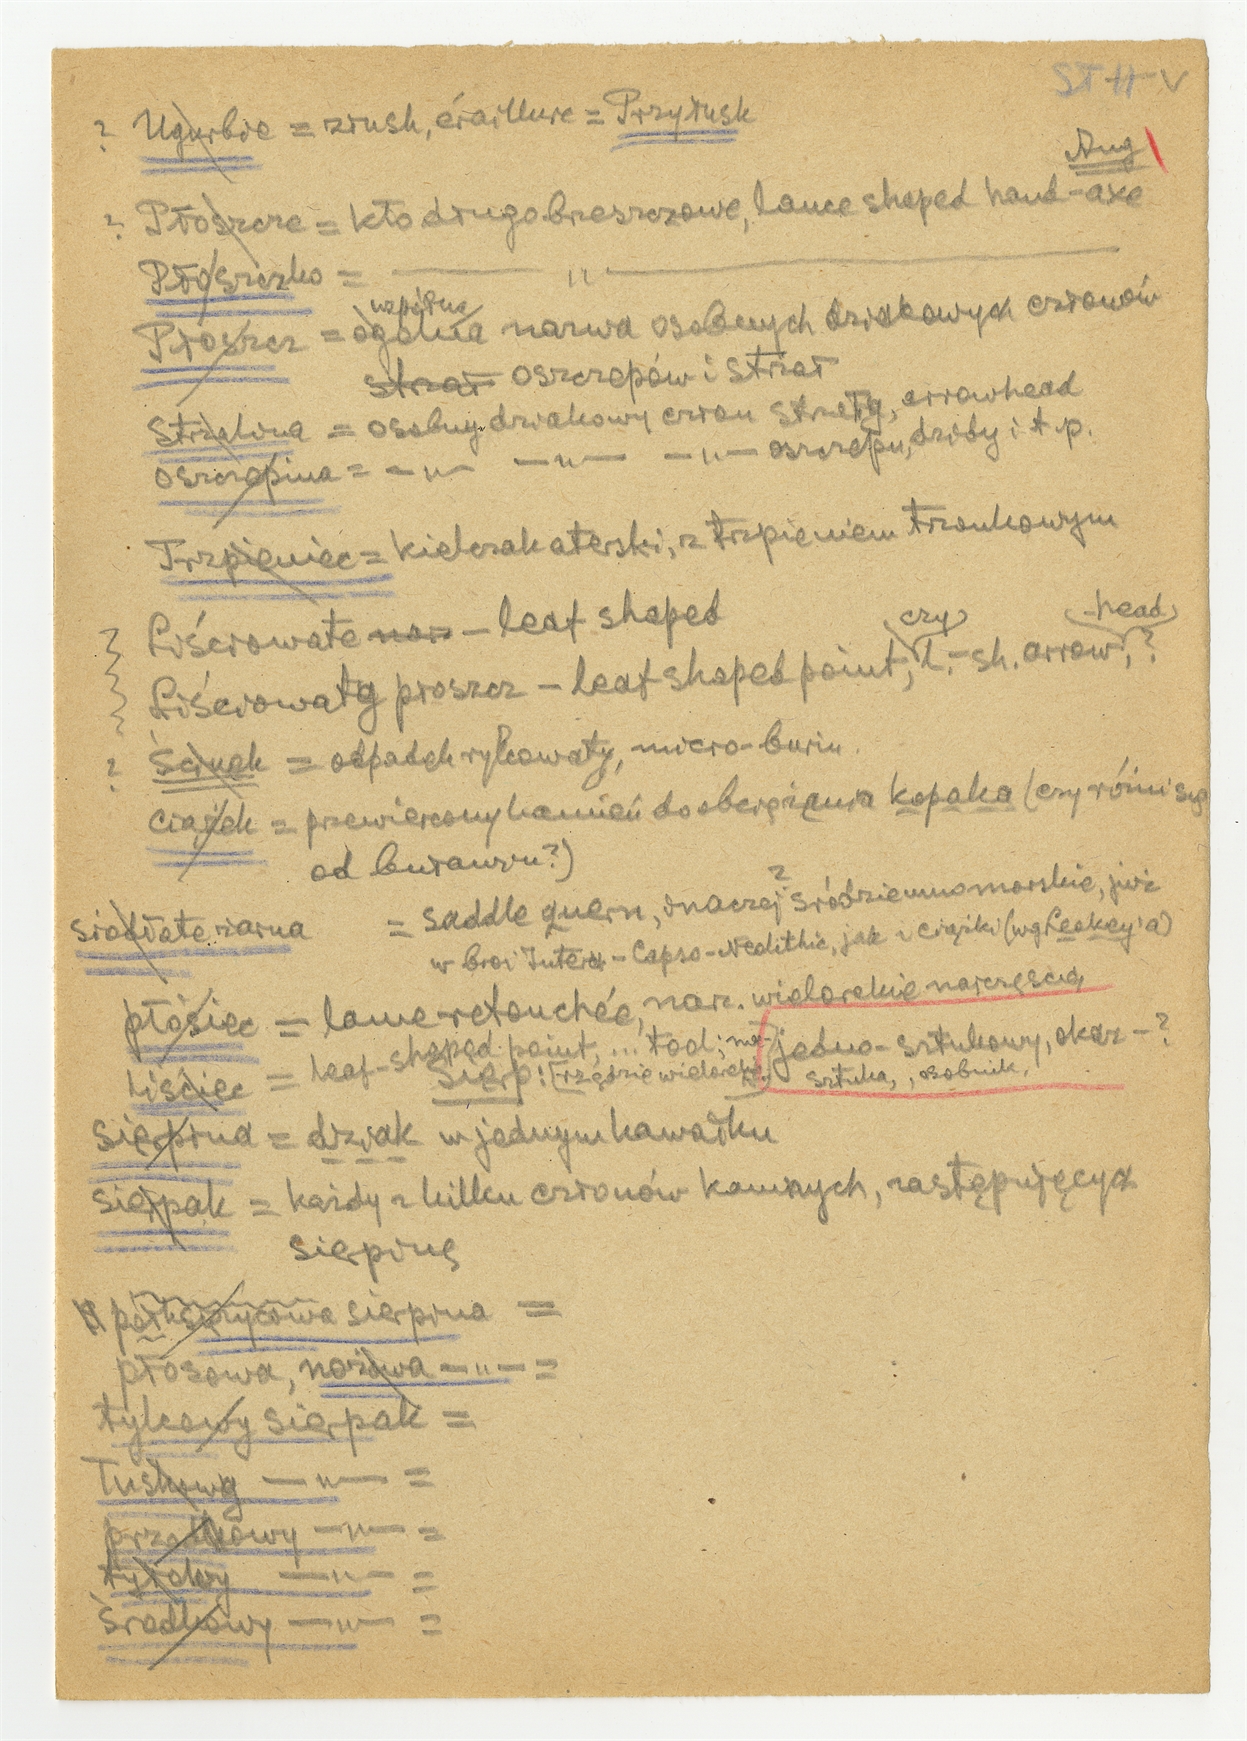 ST H V
? Ugurbie = złusk, éraillure = Przyłusk
Ang
? Płoszcze = kło długobreszczowe, lance shaped hand-axe
Płoszczko = —— " ——
wspólna
Płoszcz = ogólna nazwa osobnych dziakowych członów
strzał oszczepów i strzał
Strzalina = osobny dziakowy człon strzały, arrowhead
oszczepina = —"— —"— —"— oszczepu, dzidy i t.p.
Trzpieniec = kielczak aterski, z trzpieniem trzonkowym
Liściowate – leaf shaped
czy -head
Liściowaty płoszcz – leaf shaped point, l.-sh. arrow, ?
? Ścinek = odpadek rylcowaty, micro-burin.
ciążek = przewiercony kamień do obciążania kopaka (czy różni się
od buławy?)
siodłate żarna = saddle quern, inaczej ? śródziemnomorskie, już
w broi Inter – Capso-Neolithic, jak i ciążki (wg Leakey'a)
płosiec = lame retouchée, narz. wielorakie narzęścią
liściec = leaf-shaped point, ... tool;
jedno-sztukowy, okaz – ?
Sierp! [rzędzie wielorakie
sztuka, osobnik,
sierpina = dziak w jednym kawałku
sierpak = każdy z kilku członów kamiennych, zastępujących
sierpinę
półksiężycowa sierpina =
płosowa, nożowa —"— =
tylcowy sierpak =
łuskowy —"— =
przodkowy —"— =
tyłowy —"— =
środkowy —"— =